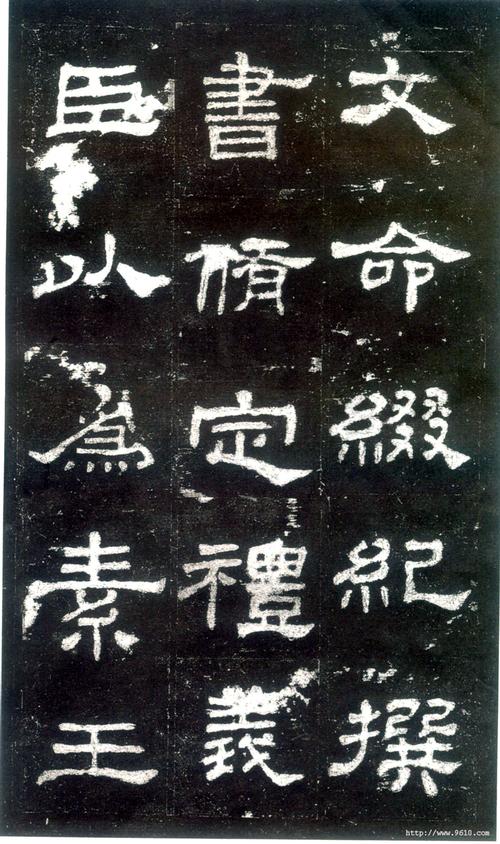 文命綴紀撰
書脩定禮義
臣以爲素王
http://www.9610.com